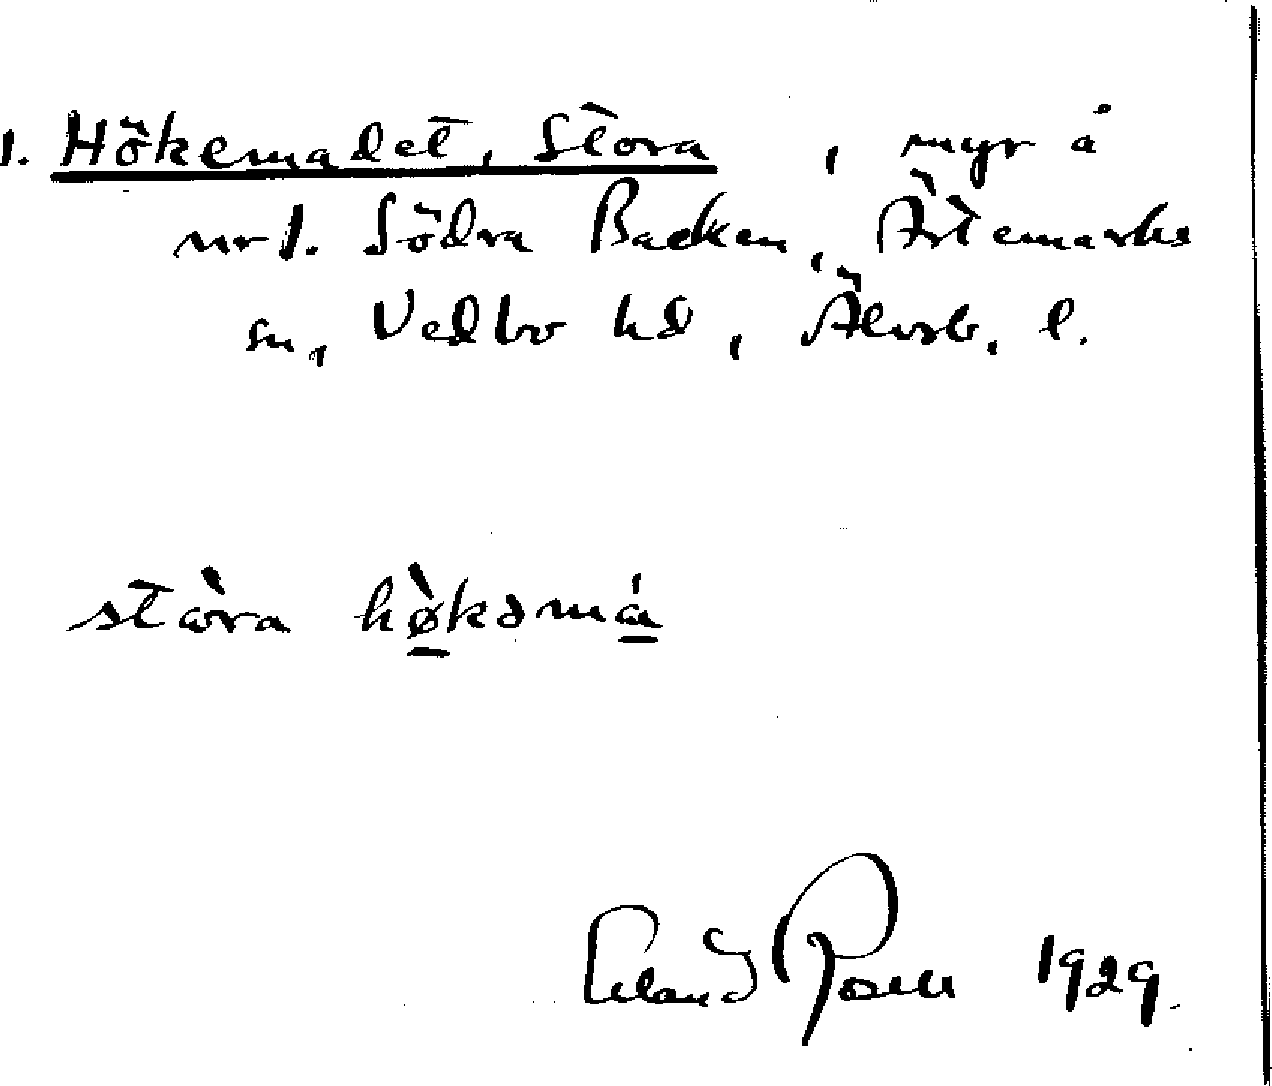 1. Hökemadet, Stora, myr å
nr 1. Södra Backen, Ärtemarks
sn, Vedbo hd, Älvsb. l.
stòra hø̀ksmá
Erland Rosell 1929.